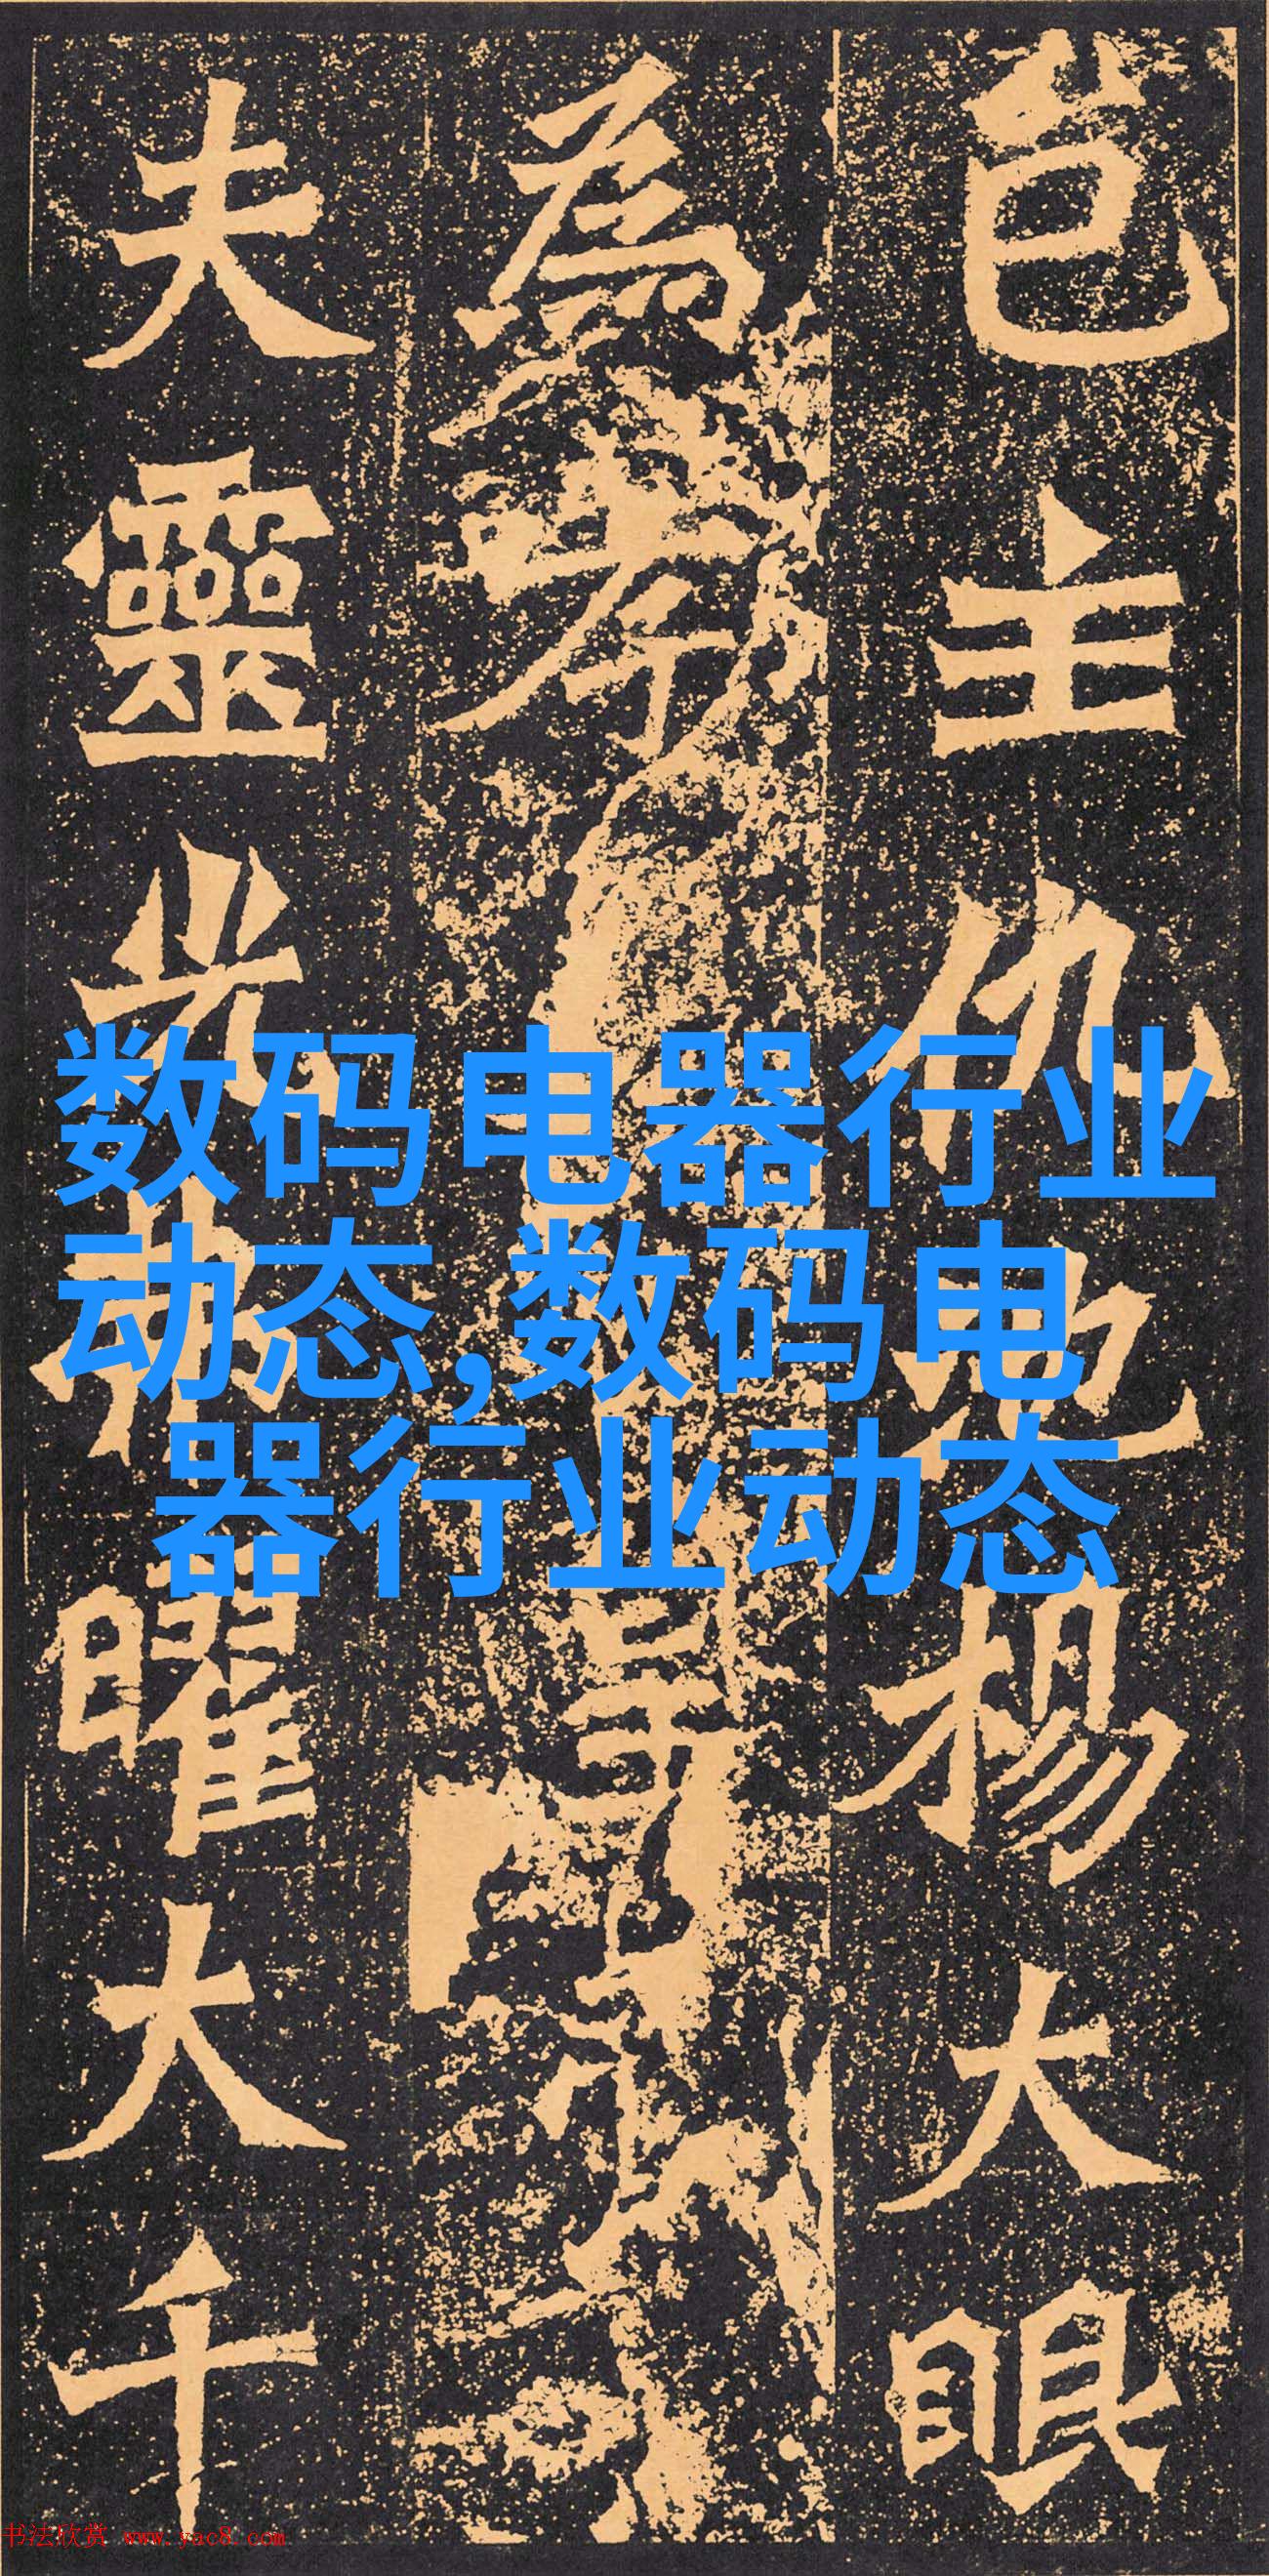 邑主仇池楊大眼
為孝
夫靈光弗曜大千
数码电器行业
动态,数码电
器行业动态
书法欣赏 www.yac8.com